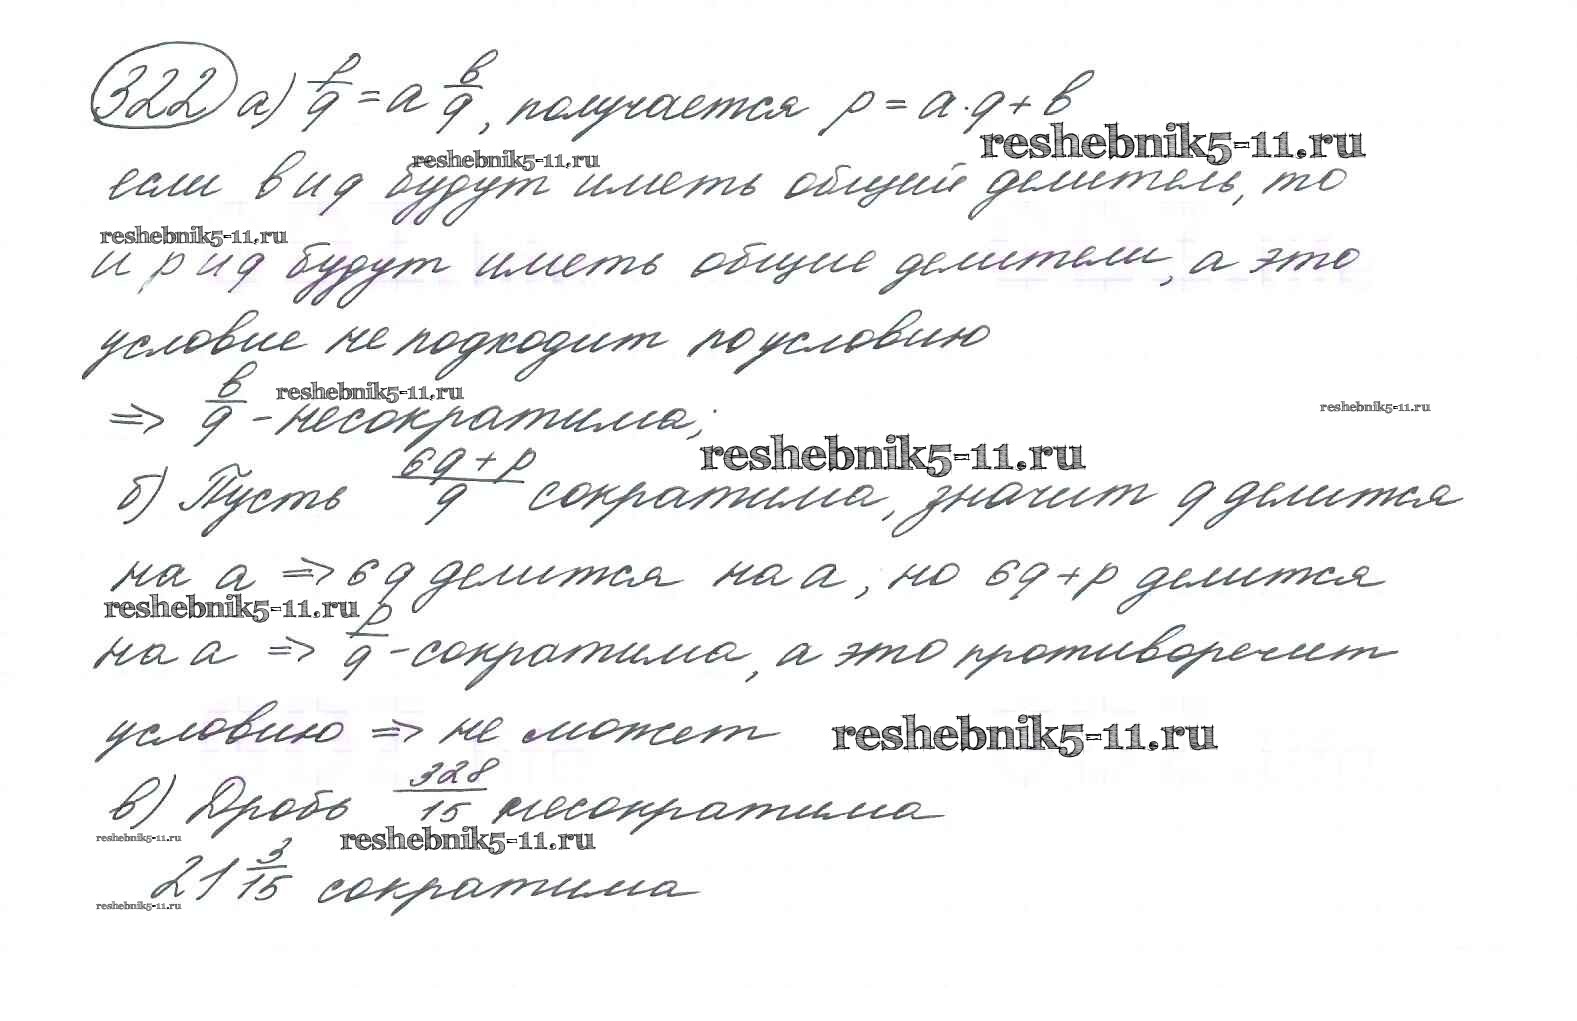 322 а) p/q = a b/q, получается p = a·q + b
reshebnik5-11.ru
reshebnik5-11.ru
если b и q будут иметь общий делитель, то
reshebnik5-11.ru
и p и q будут иметь общие делители, а это
условие не подходит по условию
reshebnik5-11.ru
reshebnik5-11.ru
=> b/q - несократима;
reshebnik5-11.ru
б) Пусть 6q+p/q сократима, значит q делится
на a => 6q делится на a, но 6q+p делится
reshebnik5-11.ru
на a => p/q - сократима, а это противоречит
условию => не может
reshebnik5-11.ru
в) Дробь 328/15 несократима
reshebnik5-11.ru
reshebnik5-11.ru
21 3/15 сократима
reshebnik5-11.ru